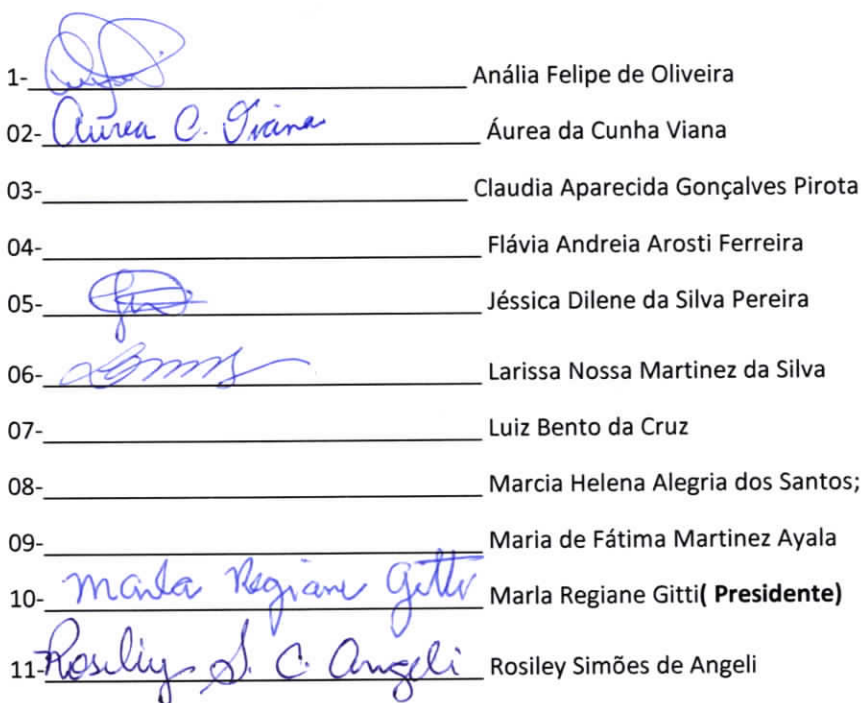 1- Anália Felipe de Oliveira
02- Aurea C. Viana Áurea da Cunha Viana
03- Claudia Aparecida Gonçalves Pirota
04- Flávia Andreia Arosti Ferreira
05- Jéssica Dilene da Silva Pereira
06- Larissa Nossa Martinez da Silva
07- Luiz Bento da Cruz
08- Marcia Helena Alegria dos Santos;
09- Maria de Fátima Martinez Ayala
10- Marla Regiane Gitti Marla Regiane Gitti( Presidente)
11- Rosiley S. C. Angeli Rosiley Simões de Angeli